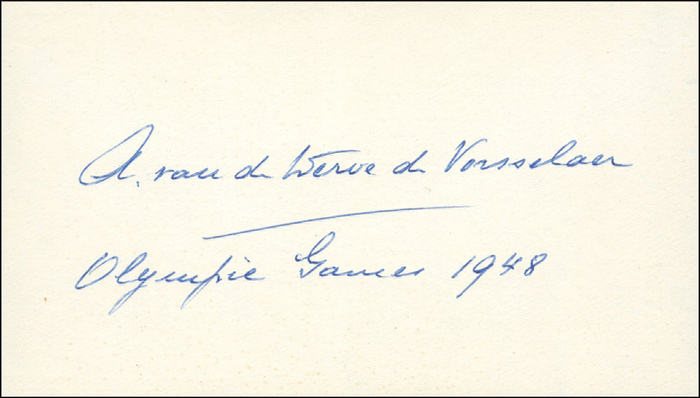 A. van de Werve de Vorsselaer
Olympic Games 1948